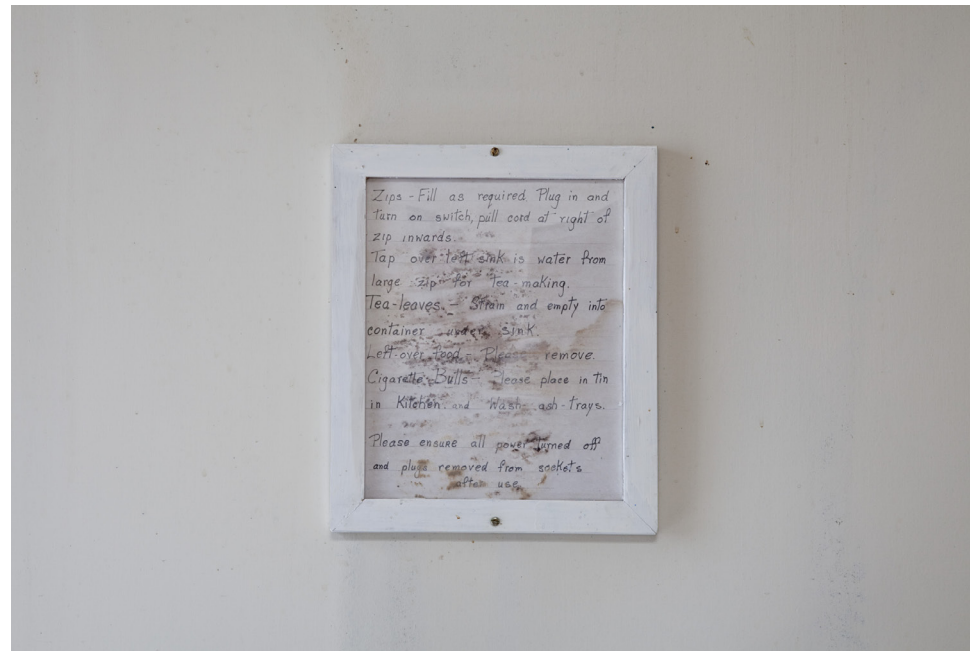 Zips - Fill as required Plug in and
turn on switch, pull cord at right of
zip inwards.
Tap over left sink is water from
large zip for tea-making.
Tea-leaves - Strain and empty into
container under sink.
Left-over food - Please remove.
Cigarette Butts - Please place in tin
in Kitchen and Wash ash-trays.
Please ensure all power turned off
and plugs removed from sockets
after use.